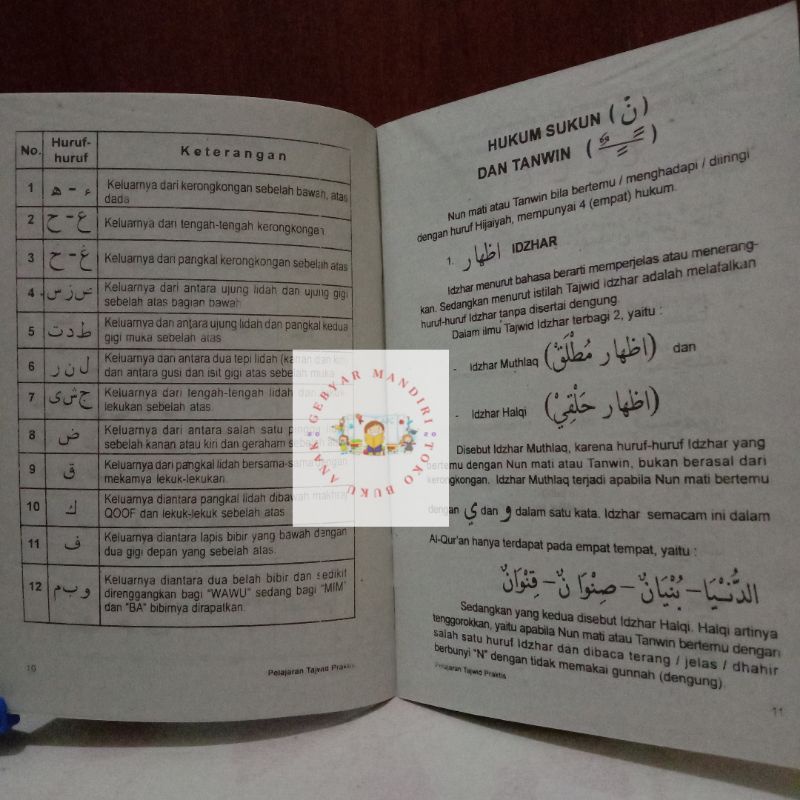 No. Huruf-huruf Keterangan
1 ء - ھ Keluarnya dari kerongkongan sebelah bawah, atas
dada
2 ع - ح Keluarnya dari tengah-tengah kerongkongan
3 غ - خ Keluarnya dari pangkal kerongkongan sebelah atas
4 ص ز س Keluarnya dari antara ujung lidah dan ujung gigi
sebelah atas bagian bawah
5 ط د ت Keluarnya dari antara ujung lidah dan pangkal kedua
gigi muka sebelah atas
6 ل ن ر Keluarnya dari antara dua tepi lidah (kanan dan kiri)
dan antara gusi dan isit gigi atas sebelah muka
7 ج ش ي Keluarnya dari tengah-tengah lidah dan
lekukan sebelah atas
8 ض Keluarnya dari antara salah satu pinggir lidah
sebelah kanan atau kiri dan geraham sebelah atas
9 ق Keluarnya dari pangkal lidah bersama-sama dengan
mekarnya lekuk-lekukan.
10 ك Keluarnya diantara pangkal lidah dibawah makhraj
QOOF dan lekuk-lekuk sebelah atas
11 ف Keluarnya diantara lapis bibir yang bawah dengan
dua gigi depan yang sebelah atas.
12 و ب م Keluarnya diantara dua belah bibir dan sedikit
direnggangkan bagi "WAWU" sedang bagi "MIM"
dan "BA" bibirnya dirapalkan.
10 Pelajaran Tajwid Praktis
HUKUM SUKUN (نْ)
DAN TANWIN (ـًـٍـٌ)
Nun mati atau Tanwin bila bertemu / menghadapi / diiringi
dengan huruf Hijaiyah, mempunyai 4 (empat) hukum.
1. اظهار IDZHAR
Idzhar menurut bahasa berarti memperjelas atau menerang-
kan. Sedangkan menurut istilah Tajwid idzhar adalah melafalkan
huruf-huruf Idzhar tanpa disertai dengung.
Dalam ilmu Tajwid Idzhar terbagi 2, yaitu :
- Idzhar Muthlaq (اظهار مُطْلَقْ) dan
- Idzhar Halqi (اظهار حَلْقِيْ)
Disebut Idzhar Muthlaq, karena huruf-huruf Idzhar yang
bertemu dengan Nun mati atau Tanwin, bukan berasal dari
kerongkongan. Idzhar Muthlaq terjadi apabila Nun mati bertemu
dengan ي dan و dalam satu kata. Idzhar semacam ini dalam
Al-Qur'an hanya terdapat pada empat tempat, yaitu :
الدُّنْيَا - بُنْيَانٌ - صِنْوَانٌ - قِنْوَانٌ
Sedangkan yang kedua disebut Idzhar Halqi. Halqi artinya
tenggorokkan, yaitu apabila Nun mati atau Tanwin bertemu dengan
salah satu huruf Idzhar dan dibaca terang / jelas / dhahir
berbunyi "N" dengan tidak memakai gunnah (dengung).
Pelajaran Tajwid Praktis 11
GEBYAR MANDIRI
TOKO BUKU ANAK